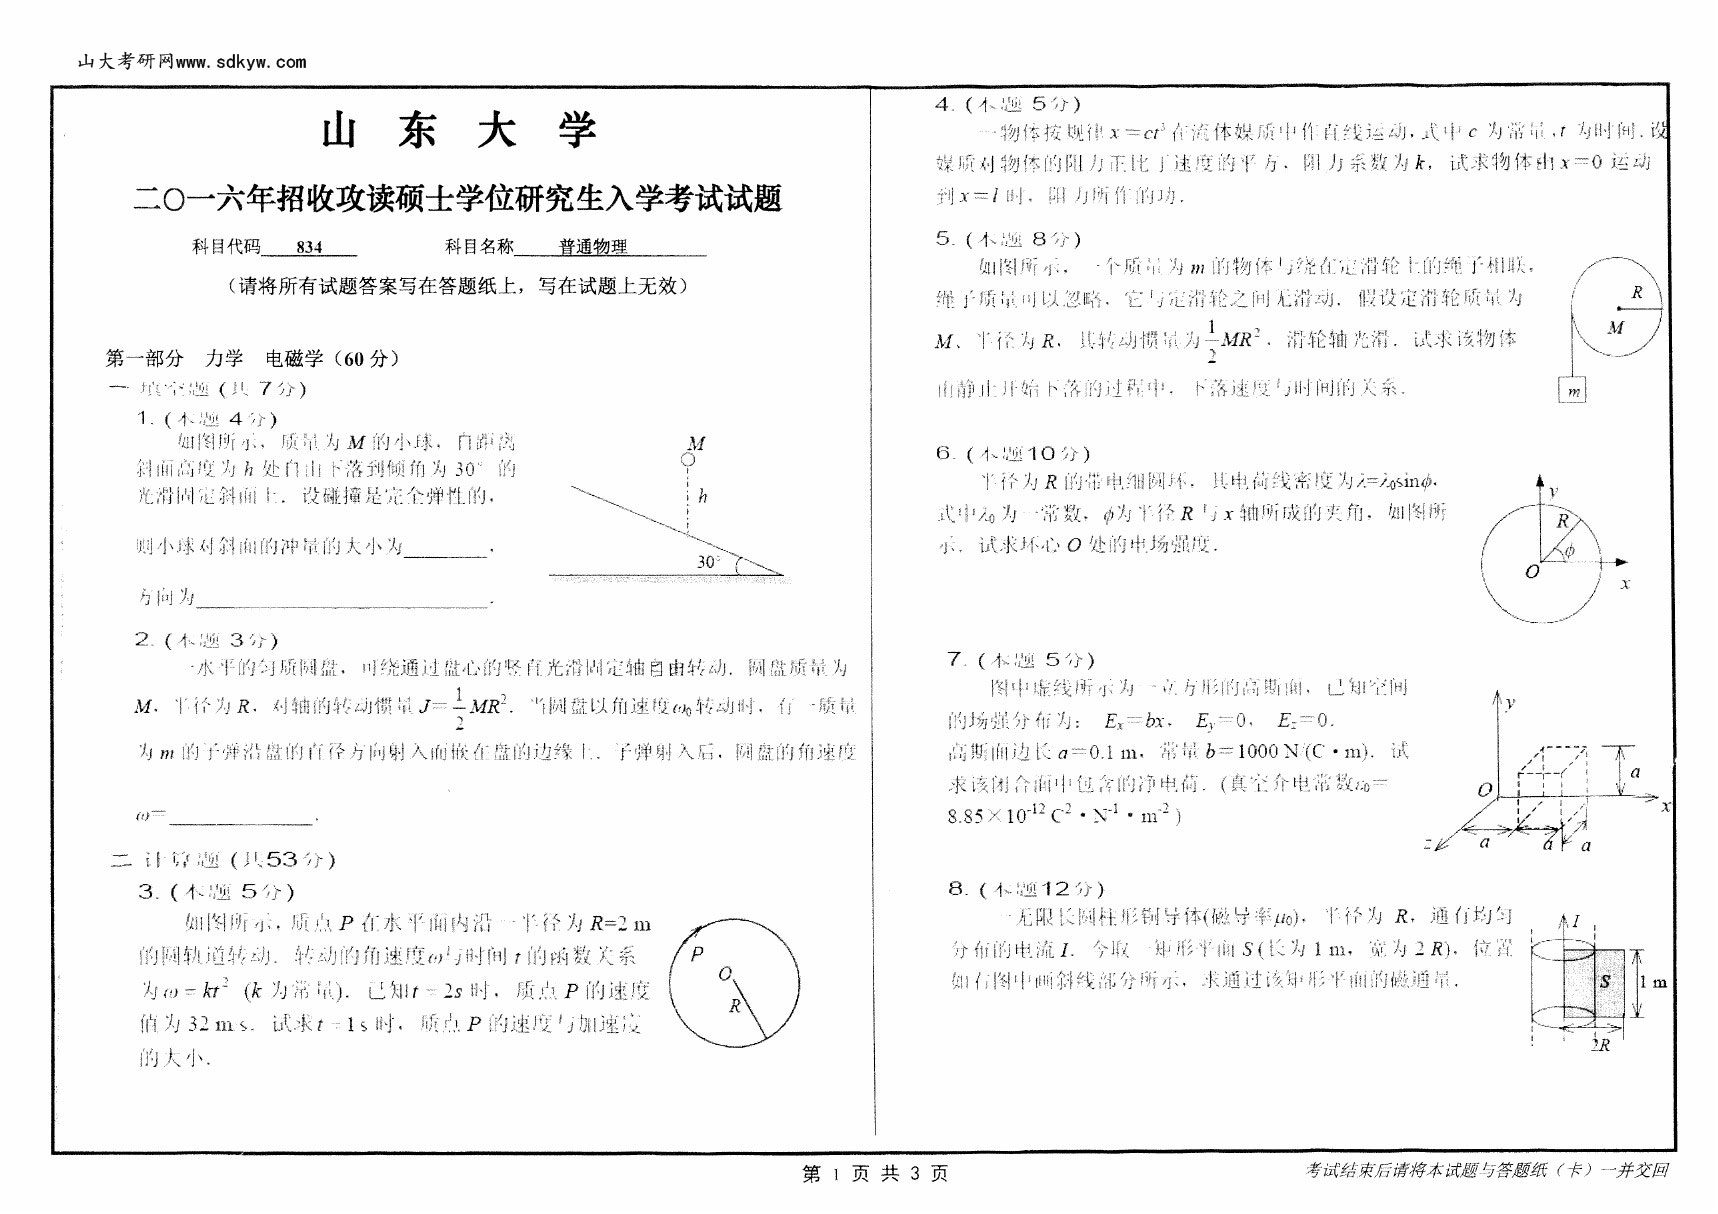 山大考研网www.sdkyw.com
山 东 大 学
二○一六年招收攻读硕士学位研究生入学考试试题
科目代码 834 科目名称 普通物理
（请将所有试题答案写在答题纸上，写在试题上无效）
第一部分 力学 电磁学（60 分）
一 填空题 (共 7分)
1. (本题 4分)
如图所示，质量为 M 的小球，自距离
斜面高度为 h 处自由下落到倾角为 30° 的
光滑固定斜面上．设碰撞是完全弹性的，
则小球对斜面的冲量的大小为________，
方向为____________________________．
M
h
30°
2. (本题 3分)
一水平的匀质圆盘，可绕通过盘心的竖直光滑固定轴自由转动．圆盘质量为
M，半径为 R，对轴的转动惯量 J＝1/2 MR²．当圆盘以角速度ω₀转动时，有一质量
为 m 的子弹沿盘的直径方向射入而嵌在盘的边缘上．子弹射入后，圆盘的角速度
ω＝______________．
二 计算题 (共53分)
3. (本题 5分)
如图所示，质点 P 在水平面内沿一半径为 R=2 m
的圆轨道转动．转动的角速度ω与时间 t 的函数关系
为ω = kt² (k 为常量)．已知 t = 2s 时，质点 P 的速度
值为 32 m/s．试求 t = 1 s 时，质点 P 的速度与加速度
的大小．
P
O
R
4. (本题 5分)
一物体按规律 x＝ct³ 在流体媒质中作直线运动，式中 c 为常量，t 为时间．设
媒质对物体的阻力正比于速度的平方，阻力系数为 k，试求物体由 x＝0 运动
到 x＝l 时，阻力所作的功．
5. (本题 8分)
如图所示，一个质量为 m 的物体与绕在定滑轮上的绳子相联，
绳子质量可以忽略，它与定滑轮之间无滑动．假设定滑轮质量为
M、半径为 R，其转动惯量为 1/2 MR²，滑轮轴光滑．试求该物体
由静止开始下落的过程中，下落速度与时间的关系．
R
M
m
6. (本题10分)
半径为 R 的带电细圆环，其电荷线密度为λ=λ₀sinφ，
式中λ₀ 为一常数，φ为半径 R 与 x 轴所成的夹角，如图所
示．试求环心 O 处的电场强度．
y
R
φ
O
x
7. (本题 5分)
图中虚线所示为一立方形的高斯面，已知空间
的场强分布为： Eₓ＝bx， E_y＝0， E_z＝0．
高斯面边长 a＝0.1 m，常量 b＝1000 N/(C·m)．试
求该闭合面中包含的净电荷．(真空介电常数ε₀＝
8.85×10⁻¹² C²·N⁻¹·m⁻² )
y
a
O
x
z a a a
8. (本题12分)
一无限长圆柱形铜导体(磁导率μ₀)，半径为 R，通有均匀
分布的电流 I．今取一矩形平面 S (长为 1 m，宽为 2 R)，位置
如右图中画斜线部分所示，求通过该矩形平面的磁通量．
I
S
1 m
2R
第 1 页 共 3 页
考试结束后请将本试题与答题纸（卡）一并交回